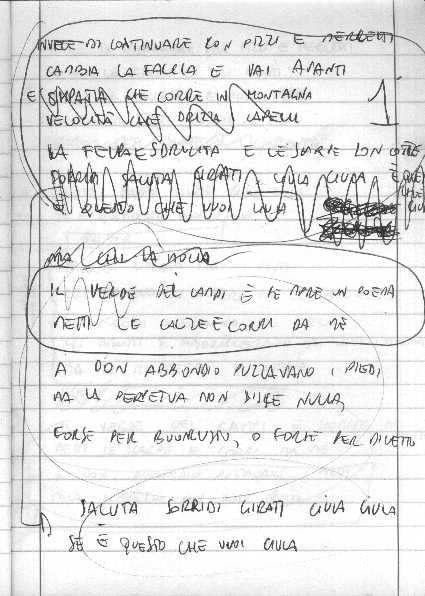 INVECE DI CONTINUARE CON PIZZI E MERLETTI
CAMBIA LA FACCIA E VAI AVANTI
E SIMPATIA CHE CORRE IN MONTAGNA
1
VELOCITÀ CHE DRIZZA CAPELLI
LA FELPA E SDRUCITA E LE SCARPE SON
SORRIDI SALUTA GIRATI CIULA CIULA
SE È QUESTO CHE VUOI CIULA
IL VERDE DEI CAMPI È SEMPRE UN POEMA
METTI LE CALZE E CORRI DA ME
A DON ABBONDIO PUZZAVANO I PIEDI
MA LA PERPETUA NON DISSE NULLA,
FORSE PER BUONGUSTO, O FORSE PER DILETTO
SALUTA SORRIDI GIRATI CIULA CIULA
SE È QUESTO CHE VUOI CIULA